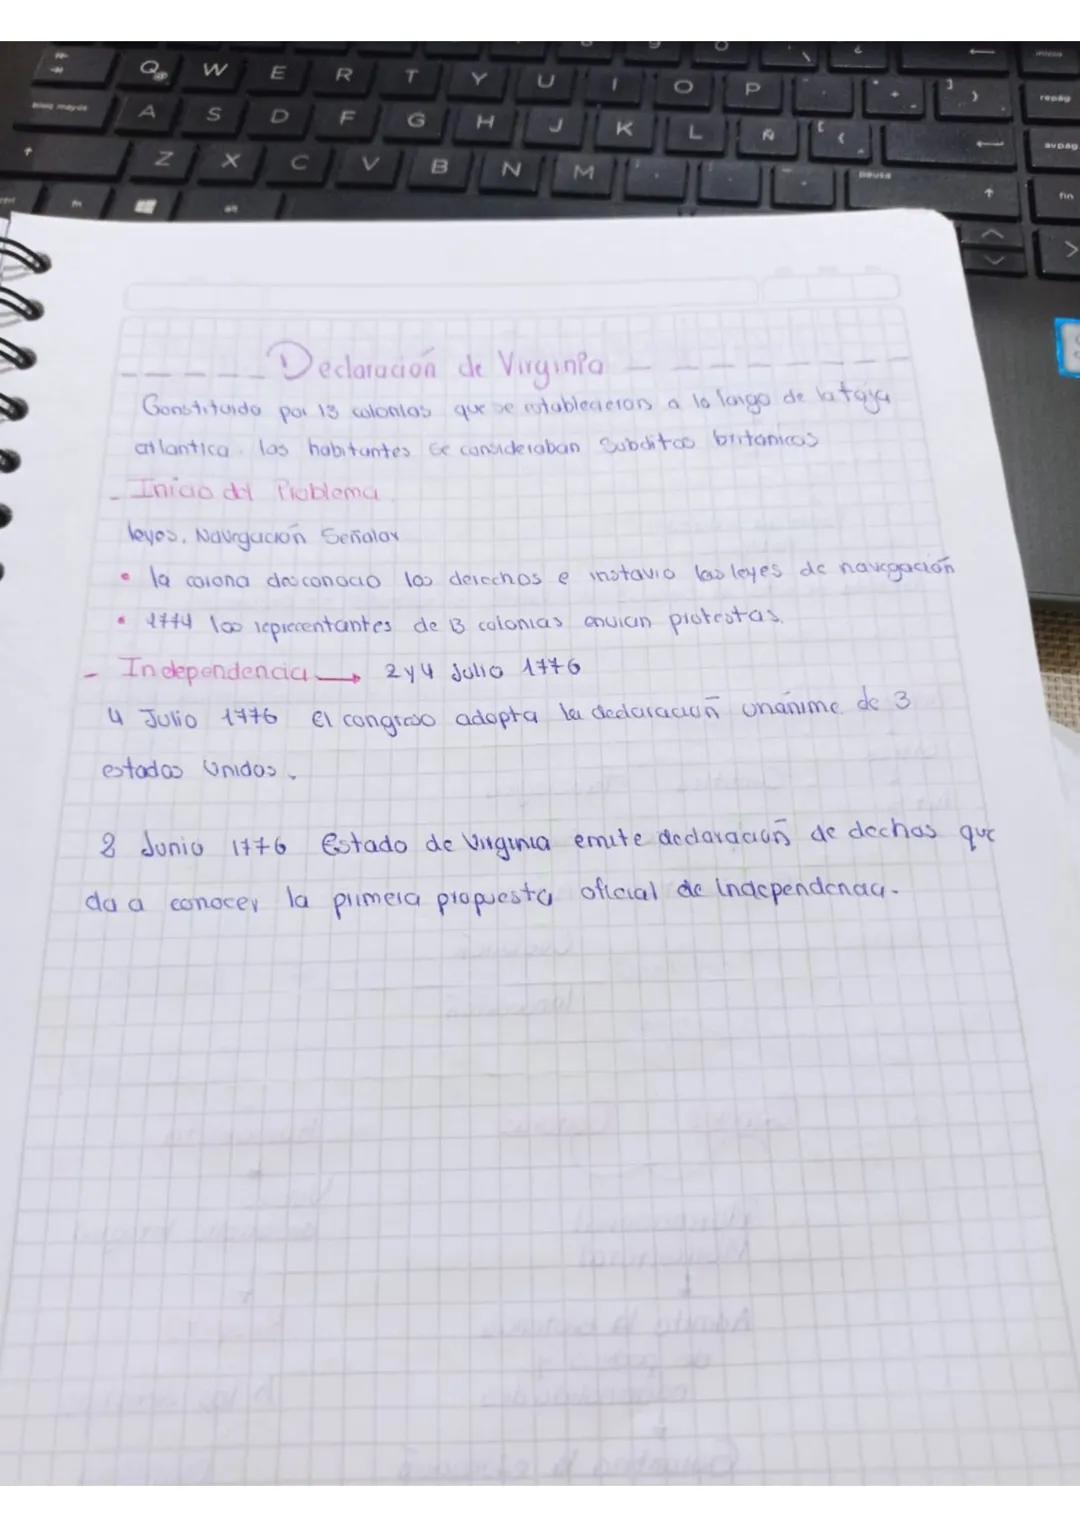 Q W E R T Y U I O P
bloq mayús A S D F G H J K L Ñ
Z X C V B N M
fn alt
pausa
inicio
repág
avpág
fin
Declaración de Virginia
Constituido por 13 colonias que se establecieron a lo largo de la faja
atlantica. los habitantes se consideraban Subditos britanicos
- Inicio del Problema
leyes. Navegación Señalar
• la corona desconocio los derechos e instavio las leyes de navegación
• 1774 los representantes de 13 colonias envian protestas.
- Independencia → 2 y 4 Julio 1776
4 Julio 1776 El congreso adopta la declaración unánime de 3
estados Unidos.
8 Junio 1776 Estado de Virginia emite declaración de dechos que
da a conocer la primera propuesta oficial de independencia.